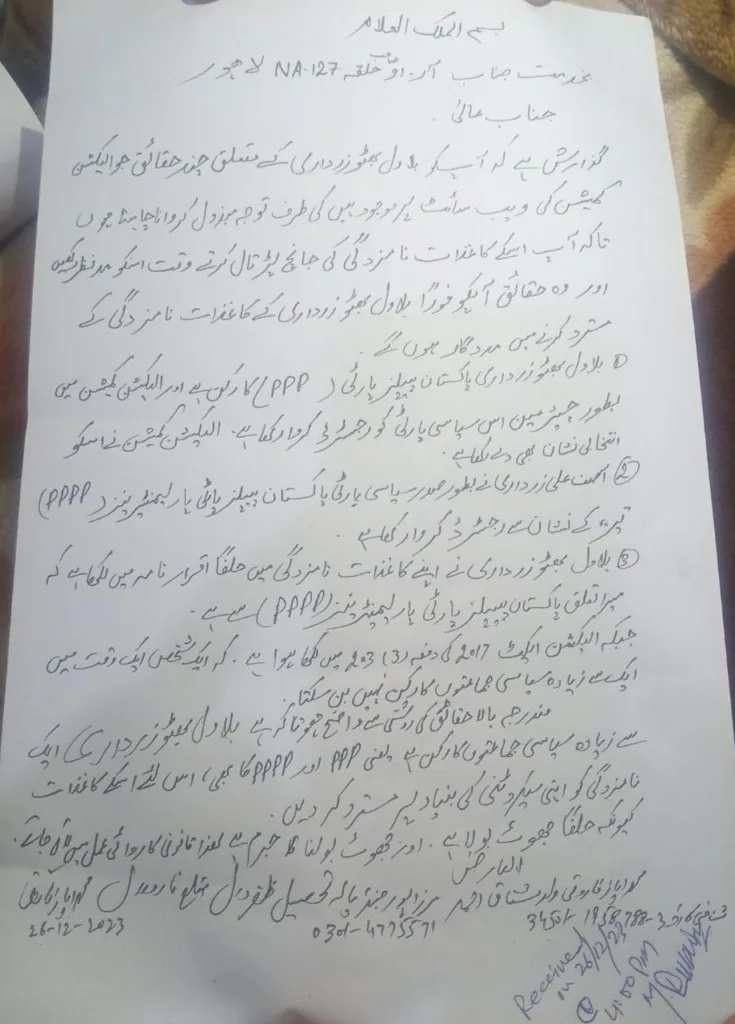 بسم الملک العلام
بخدمت جناب آر۔او صاحب حلقہ NA.127 لاہور
جناب عالیٰ۔
گزارش ہے کہ آپ کو بلاول بھٹو زرداری کے متعلق چند حقائق جو الیکشن
کمیشن کی ویب سائٹ پر موجود ہیں کی طرف توجہ مبذول کروانا چاہتا ہوں
تاکہ آپ اسکے کاغذات نامزدگی کی جانچ پڑتال کرتے وقت اسکو مدنظر رکھیں
اور وہ حقائق آپکو فوراً بلاول بھٹو زرداری کے کاغذات نامزدگی کے
مسترد کرنے میں مددگار ہوں گے۔
① بلاول بھٹو زرداری پاکستان پیپلز پارٹی (PPP) کا رکن ہے اور الیکشن کمیشن میں
بطور چیئرمین اس سیاسی پارٹی کو رجسٹرڈ کروا رکھا ہے۔ الیکشن کمیشن نے اسکو
انتخابی نشان بھی دے رکھا ہے۔
② آصف علی زرداری نے بطور صدر سیاسی پارٹی پاکستان پیپلز پارٹی پارلیمنٹیرینز (PPPP)
تیر کے نشان سے رجسٹرڈ کروا رکھا ہے۔
③ بلاول بھٹو زرداری نے اپنے کاغذات نامزدگی میں حلفاً اقرار نامہ میں لکھا ہے کہ
میرا تعلق پاکستان پیپلز پارٹی پارلیمنٹیرینز (PPPP) سے ہے۔
جبکہ الیکشن ایکٹ 2017 کی دفعہ (3) 203 میں لکھا ہوا ہے۔ کہ ایک شخص ایک وقت میں
ایک سے زیادہ سیاسی جماعتوں کا رکن نہیں بن سکتا۔
مندرجہ بالا حقائق کی روشنی سے واضح ہوتا کہ ہے بلاول بھٹو زرداری ایک
سے زیادہ سیاسی جماعتوں کا رکن ہے یعنی PPP اور PPPP کا بھی، اس لئے اسکے کاغذات
نامزدگی کو اپنی سکروٹنی کی بنیاد پر مسترد کر دیں۔
کیونکہ حلفاً جھوٹ بولا ہے۔ اور جھوٹ بولنا جرم ہے لہذا قانونی کاروائی عمل میں لائی جائے۔
العارض
محمد ایاز فاروقی ولد مشتاق احمد مرزا پور تحصیل ظفروال ضلع نارووال
26-12-2023
0301-4775571
34501-1958788-3
Received
on 26/12/23
@
4:00 PM